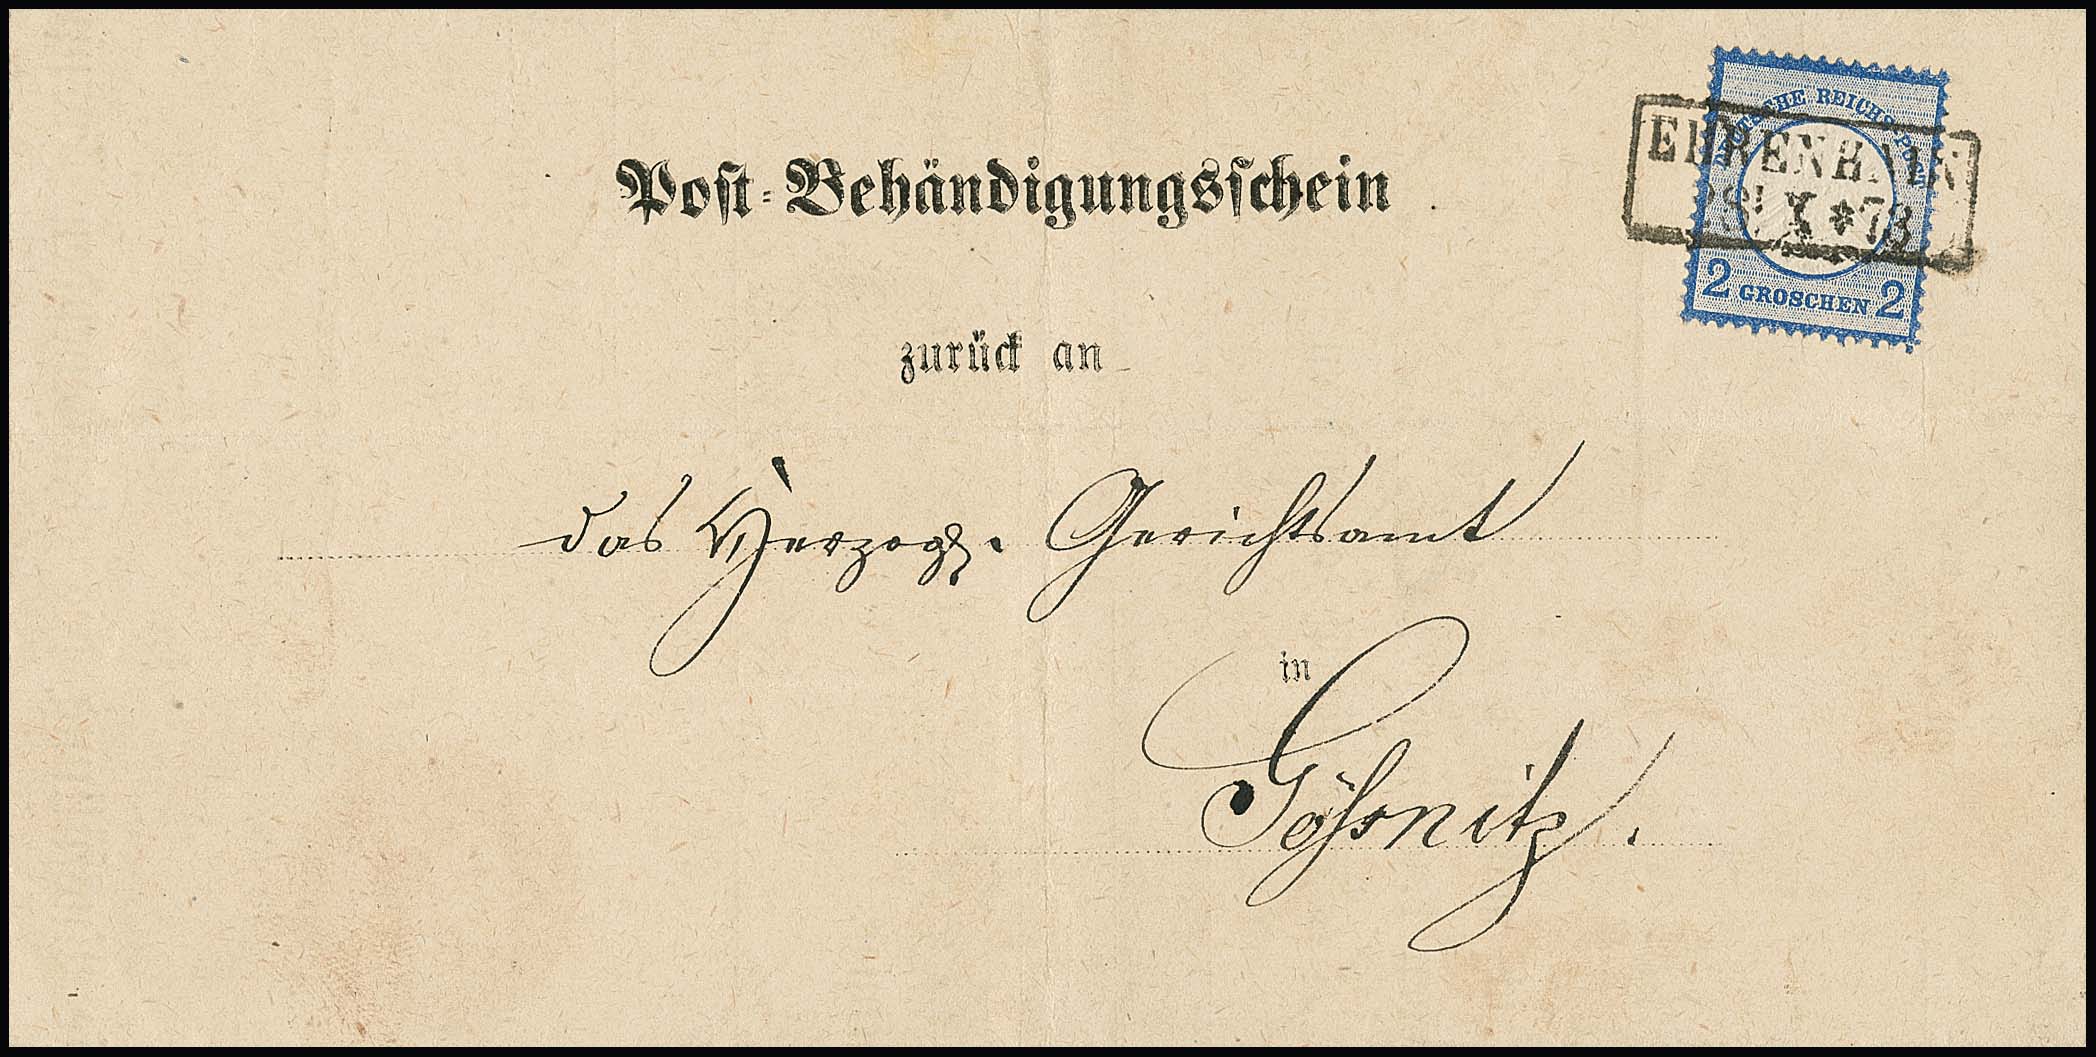 DEUTSCHE REICHS-POST
EHRENHAIN
28 X * 73
2 GROSCHEN 2
Post-Behändigungsschein
zurück an
das Herzogl. Gerichtsamt
in
Gößnitz.